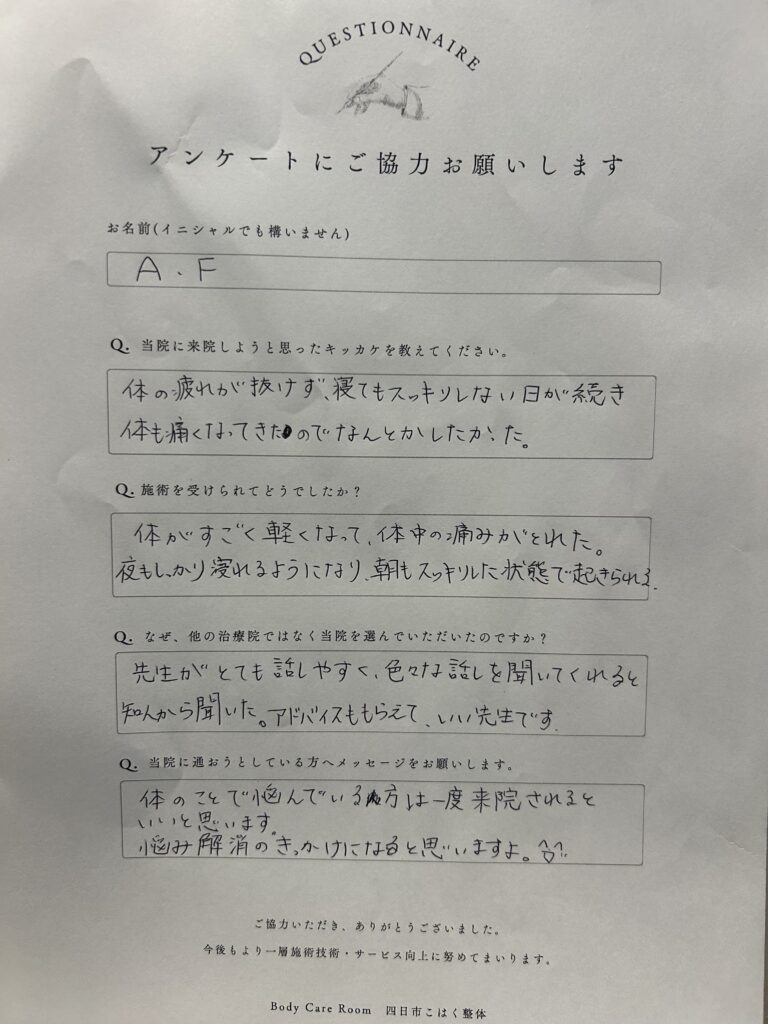 QUESTIONNAIRE
アンケートにご協力お願いします
お名前(イニシャルでも構いません)
A.F
Q. 当院に来院しようと思ったキッカケを教えてください。
体の疲れが抜けず、寝てもスッキリしない日が続き
体も痛くなってきたのでなんとかしたかった。
Q. 施術を受けられてどうでしたか？
体がすごく軽くなって、体中の痛みがとれた。
夜もしっかり寝れるようになり、朝もスッキリした状態で起きられる.
Q. なぜ、他の治療院ではなく当院を選んでいただいたのですか？
先生がとても話しやすく、色々な話しを聞いてくれると
知人から聞いた。アドバイスももらえて、いい先生です.
Q. 当院に通おうとしている方へメッセージをお願いします。
体のことで悩んでいる方は一度来院されると
いいと思います。
悩み解消のきっかけになると思いますよ。
ご協力いただき、ありがとうございました。
今後もより一層施術技術・サービス向上に努めてまいります。
Body Care Room 四日市こはく整体